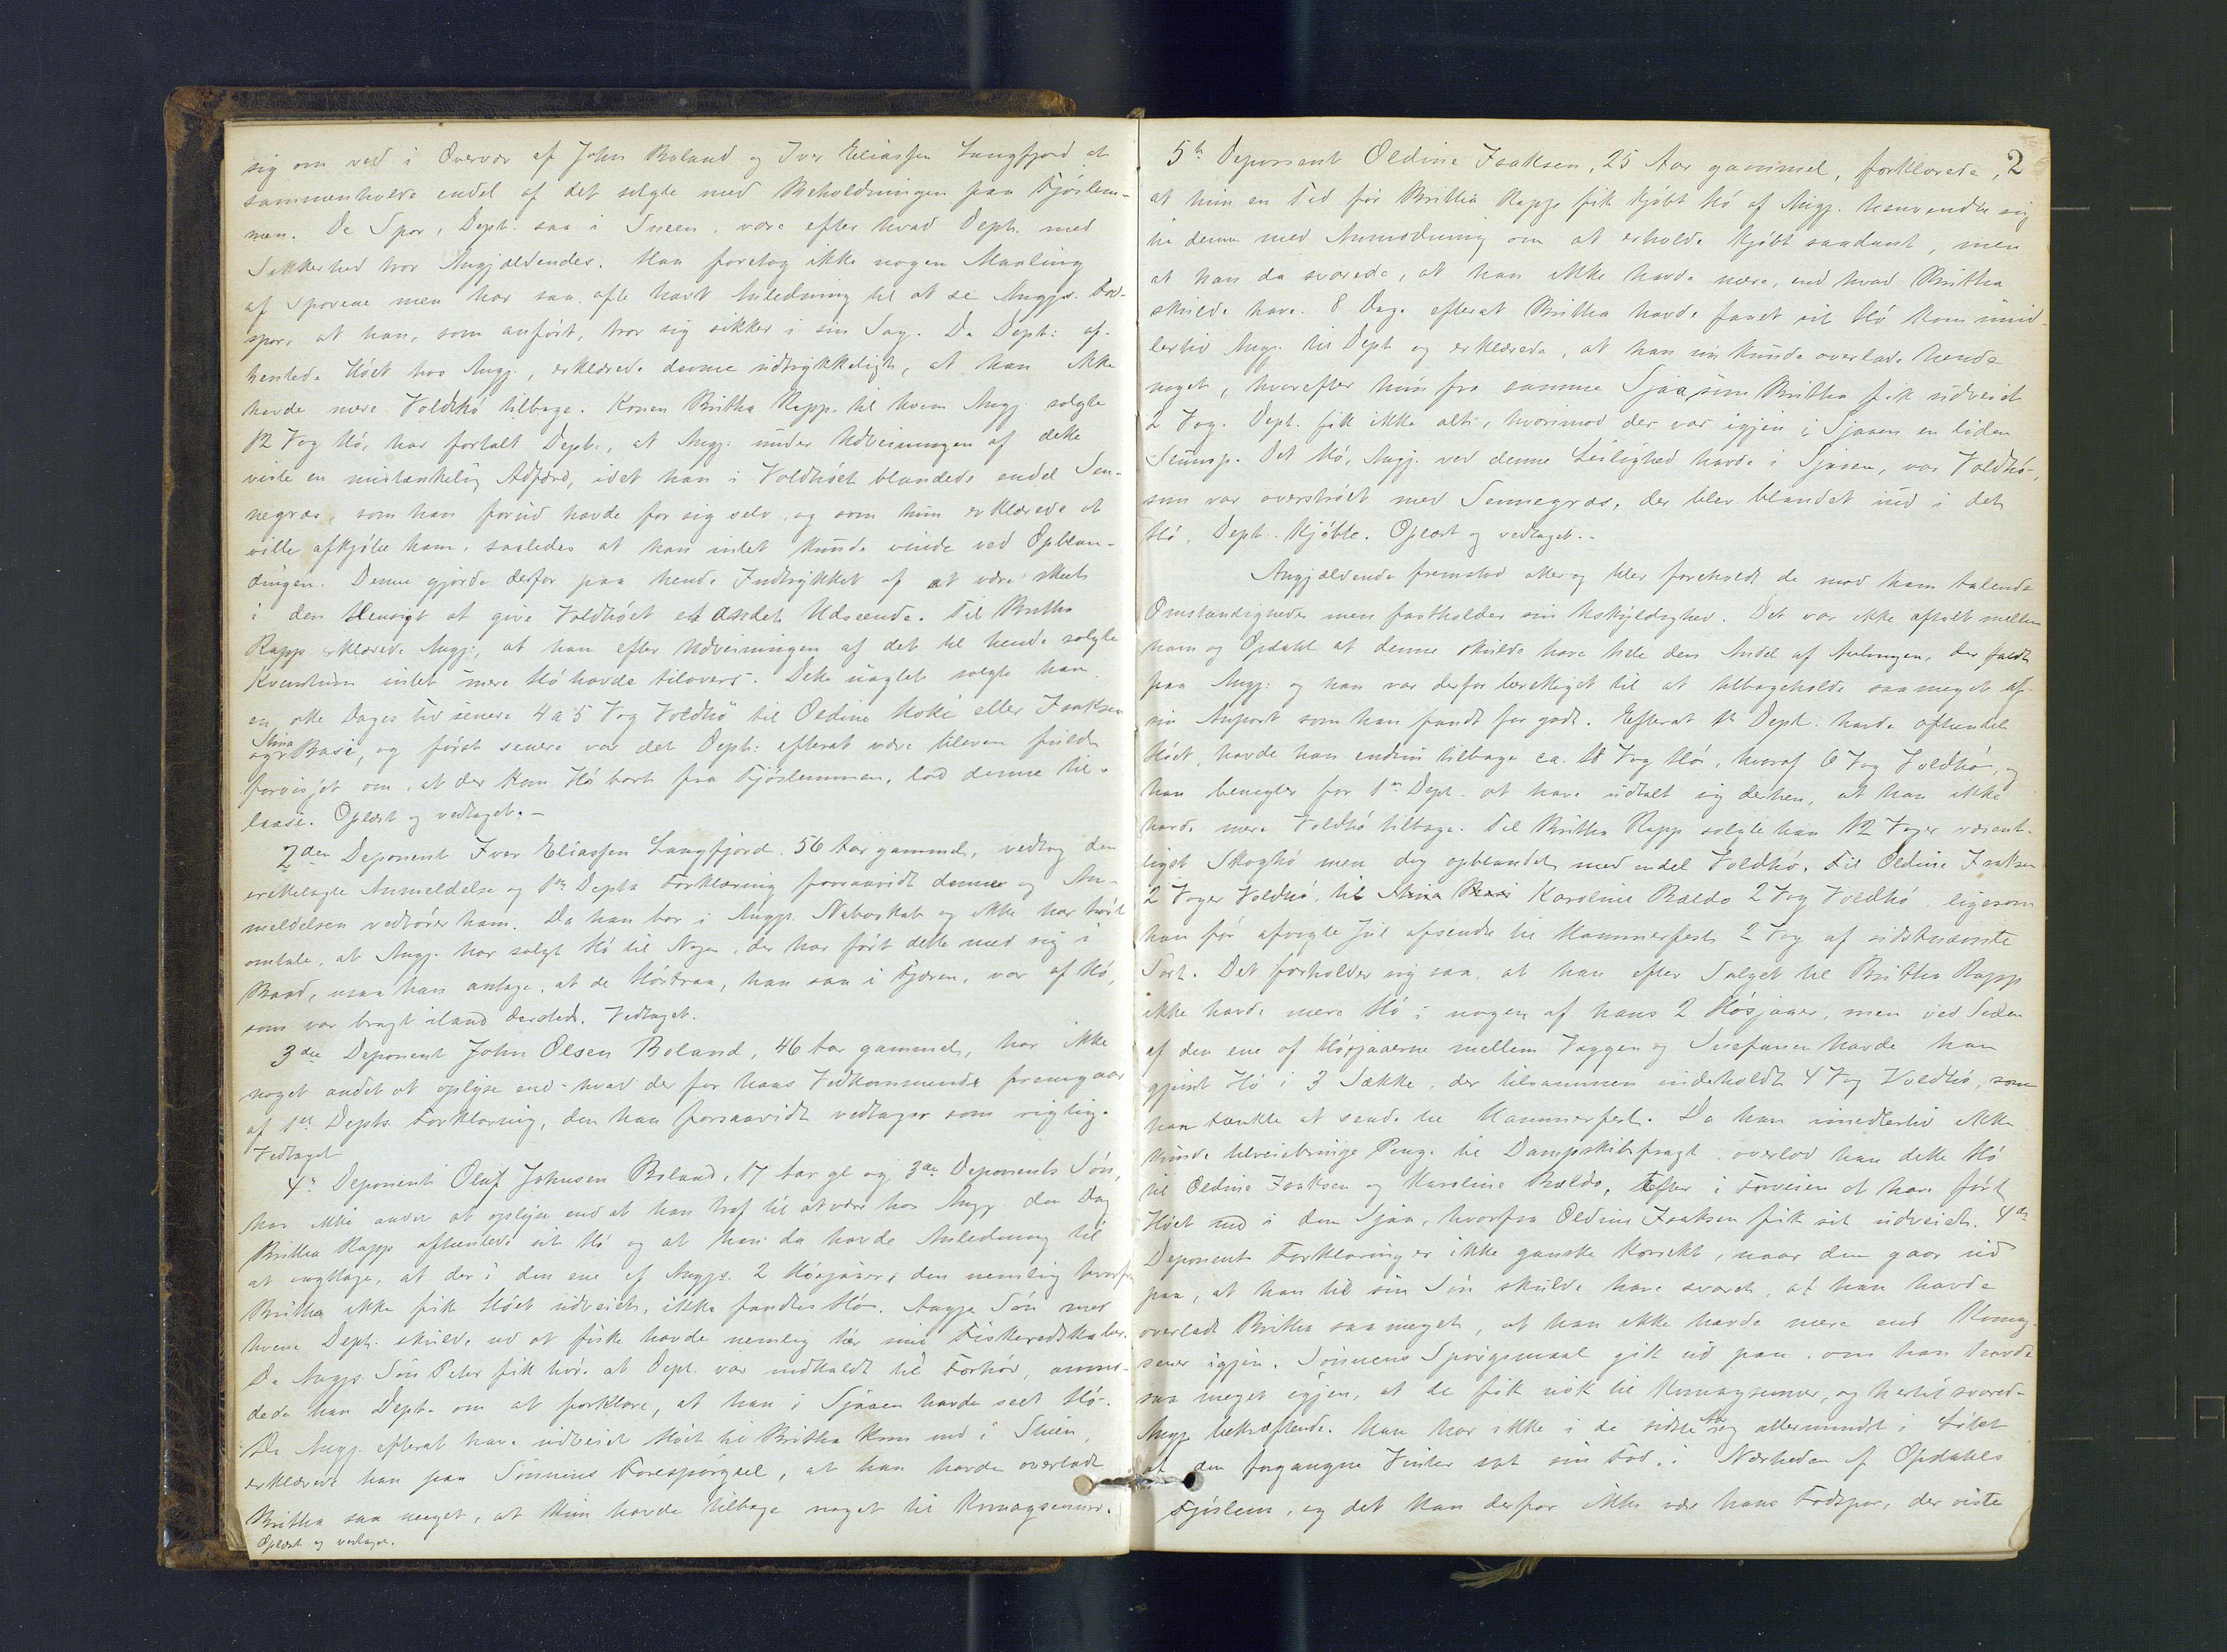 sig om ved i Overvær af John Boland og Iver Eliassen Langfjord at
sammenholde endel af det solgte med Beholdningen paa Fjøslem-
men. De Spor, Dept. saa i Sneen, vare efter hvad Dept. med
Sikkerhed tror Angjældendes. Han foretog ikke nogen Maaling
af Sporene men har saa ofte havt Anledning til at se Angjs. Fod-
spor, at han, som anført, tror sig sikker i sin Sag. Da Dept. af-
hentede Høet hos Angj., erklærede denne udtrykkeligt, at han ikke
havde mere Voldhø tilbage. Konen Britha Rapp til hvem Angj. solgte
12 Vog Hø, har fortalt Dept., at Angj. under Udveiningen af dette
viste en mistænkelig Adfærd, idet han i Voldhøet blandede endel Sen-
negræs, som han forud havde for sig selv, og som hun erklærede at
ville afkjøbe ham, saaledes at han intet kunde vinde ved Opblan-
dingen. Denne gjorde derfor paa hende Indtrykket af at være skeet
i den Hensigt at give Voldhøet et andet Udseende. Til Britha
Rapp erklærede Angj., at han efter Udveiningen af det til hende solgte
Kvantum intet mere Hø havde tilovers. Dette uagtet solgte han
en otte Dages Tid senere 4 a 5 Vog Voldhø til Oldine Hoki eller Isaksen
og Stina Basi, og først senere var det Dept. efterat være bleven fuldt
forvisset om, at der kom Hø bort fra Fjøslemmen, lod denne til-
laase. Oplæst og vedtaget. -
2den Deponent Iver Eliassen Langfjord, 56 Aar gammel, vedtog den
erikelagte Anmeldelse og 1ste Depts Forklaring forsaavidt denne og An-
meldelsen vedrører ham. Da han bor i Angjs. Naboskab og ikke har hørt
omtale, at Angj. har solgt Hø til Nogen, der har ført dette med sig i
Baad, maa han antage, at de Høstraa, han saa i Fjæren, var af Hø,
som var bragt iland dersteds. Vedtaget.
3die Deponent John Olsen Boland, 46 Aar gammel, har ikke
noget andet at oplyse end hvad der for hans Vedkommende fremgaar
af 1ste Depts Forklaring, den han forsaavidt vedtager som rigtig.
Vedtaget
4de Deponent Oluf Johnsen Boland, 17 Aar gl og 3die Deponents Søn,
har ikke andet at oplyse end at han traf til at være hos Angj. den Dag
Britha Rapp afhentede sit Hø og at han da havde Anledning til
at iagttage, at der i den ene af Angjs. 2 Høsjaaer, den nemlig hvorfra
Britha ikke fik Høet udveiet, ikke fandtes Hø. Angjs Søn med
hvem Dept. skulde ud at fiske havde nemlig her sine Fiskeredskaber.
Da Angjs. Søn Peter fik høre at Dept. var indkaldt til Forhør, anmo-
dede han Dept. om at forklare, at han i Sjaaen havde seet Hø.
Da Angj. efterat have udveiet Høet til Britha kom ind i Stuen,
erklærede han paa Sønnens Forespørgsel, at han havde overladt
Britha saa meget, at kun havde tilbage noget til Komagsenner.
Oplæst og vedtaget.
2
5te Deponent Oldine Isaksen, 25 Aar gammel, forklarede,
at hun en Tid før Britha Rapp fik kjøbt Hø af Angj. henvendte sig
til denne med Anmodning om at erholde kjøbt saadant, men
at han da svarede, at han ikke havde mere, end hvad Britha
skulde have. 8 Dage efterat Britha havde faaet sit Hø kom imid-
lertid Angj. til Dept og erklærede, at han nu kunde overlade hende
noget, hvorefter hun fra samme Sjaa, som Britha fik udveiet
2 Vog. Dept. fik ikke alt, hvorimod der var igjen i Sjaaen en liden
Slump. Det Hø, Angj. ved denne Leilighed havde i Sjaaen, var Voldhø,
som var overstrøet med Sennegræs, der blev blandet ind i det
Hø, Dept. kjøbte. Oplæst og vedtaget. -
Angjældende fremstod atter og blev foreholdt de mod ham talende
Omstændigheder men fastholder sin Uskyldighed. Det var ikke aftalt mellem
ham og Opdahl at denne skulde have hele den Andel af Avlingen, der faldt
paa Angj. og han var derfor berettiget til at tilbageholde saameget af
sin Anpart som han fandt for godt. Efterat 1te Dept. havde afhentet
Høet, havde han endnu tilbage ca. 18 Vog Hø, hvoraf 6 Vog Voldhø, og
han benegter for 1ste Dept. at have udtalt sig derhen, at han ikke
havde mere Voldhø tilbage. Til Britha Rapp solgte han 12 Voger væsent-
ligst Skoghø men dog opblandet med endel Voldhø. Til Oldine Isaksen
2 Voger Voldhø, til Stina Basi Karoline Baldo 2 Vog Voldhø, ligesom
han før afvigte Jul afsendte til Hammerfest 2 Vog af sidstnævnte
Sort. Det forholder sig saa, at han efter Salget til Britha Rapp
ikke havde mere Hø i nogen af hans 2 Høsjaaer, men ved Siden
af den ene af Høsjaaerne mellem Væggen og Snefanen havde han
gjemt Hø i 3 Sække, der tilsammen indeholdt 4 Vog Voldhø, som
han tænkte at sende til Hammerfest. Da han imidlertid ikke
kunde tilveiebringe Penge til Dampskibsfragt, overlod han dette Hø
til Oldine Isaksen og Karoline Baldo, efter i Forveien at have ført
Høet ind i den Sjaa, hvorfra Oldine Isaksen fik sit udveiet. 4de
Deponents Forklaring er ikke ganske korrekt, naar den gaar ud
paa, at han til sin Søn skulde have svaret, at han havde
overladt Britha saa meget, at han ikke havde mere end Komag-
senner igjen. Sønnens Spørgsmaal gik ud paa, om han havde
saa meget igjen, at de fik nok til Komagsenner, og hertil svarede
Angj. bekræftende. Han har ikke i de sidste Aar og allermindst i Løbet
af den forgangne Vinter sat sin Fod i Nærheden af Opdahls
Fjøslem, og det kan derfor ikke være hans Fodspor, der viste